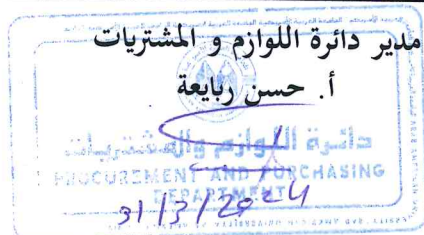 مدير دائرة اللوازم و المشتريات
أ. حسن ربايعة
دائرة اللوازم والمشتريات
PROCUREMENT AND PURCHASING
DEPARTMENT
31/3/2024